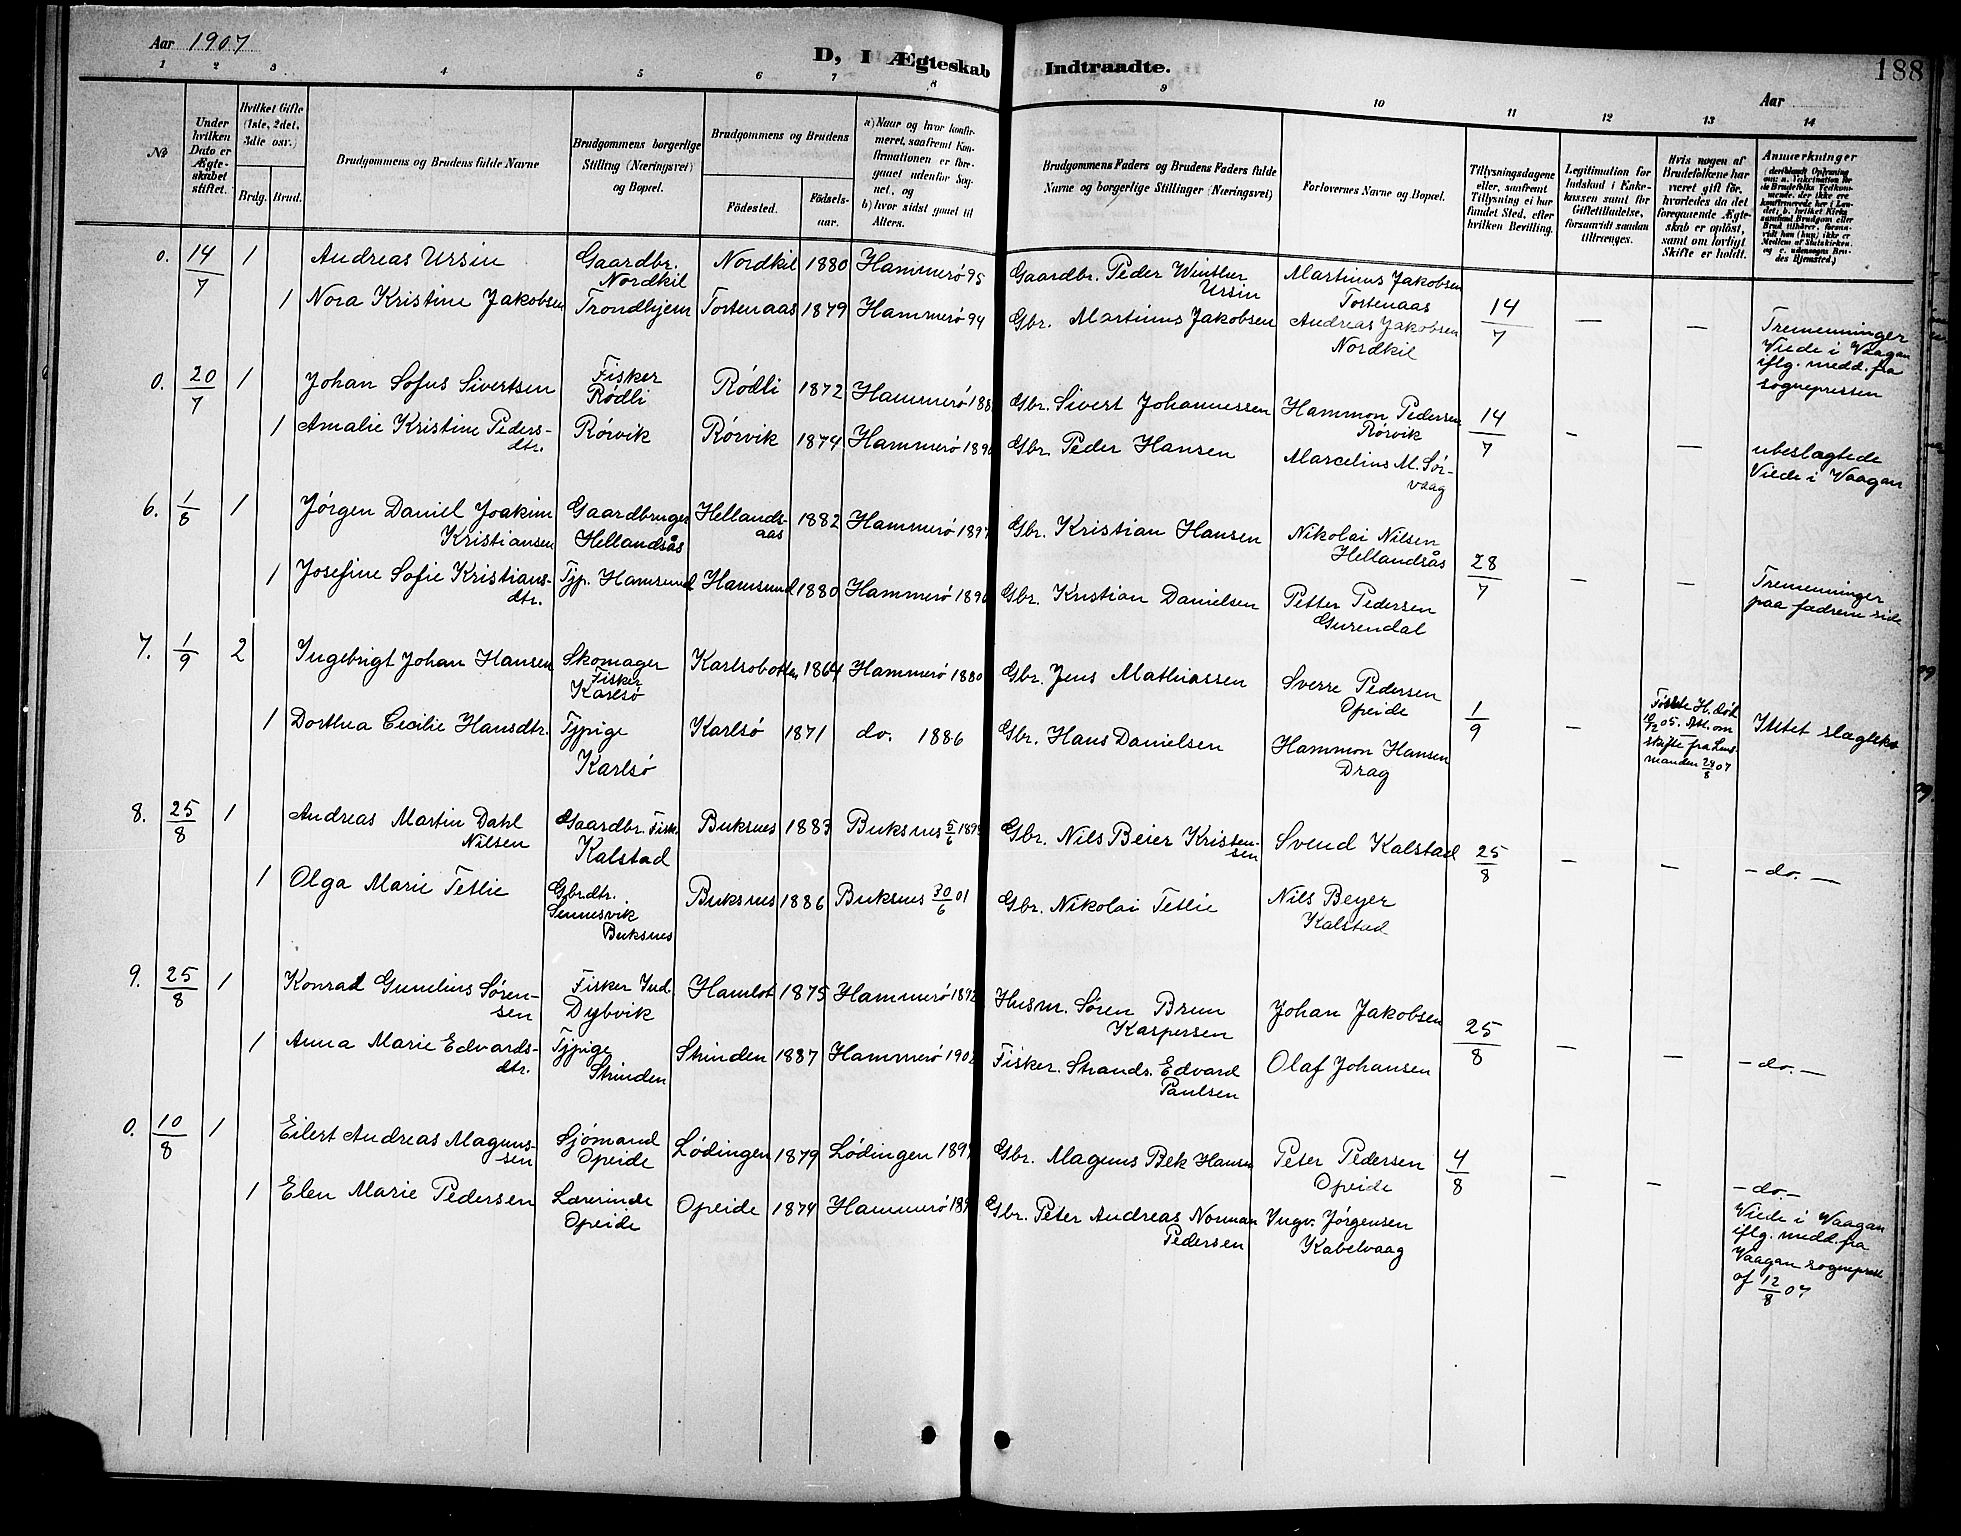 Aar 1907
D, I Ægteskab Indtraadte.
188
Aar
1 2 3 4 5 6 7 8 9 10 11 12 13 14
No
Under hvilken Dato er Ægteskabet stiftet.
Hvilket Gifte (1ste, 2det, 3die osv.)
Brdg. Brud.
Brudgommens og Brudens fulde Navne
Brudgommens borgerlige Stilling (Næringsvei) og Bopæl.
Brudgommens og Brudens
Fødested. Fødselsaar.
a) Naar og hvor konfirmeret, saafremt Konfirmationen er foregaaet udenfor Sognet, og
b) hvor sidst gaaet til Alters.
Brudgommens Faders og Brudens Faders fulde Navne og borgerlige Stillinger (Næringsvei)
Forlovernes Navne og Bopæl.
Tillysningsdagene eller, saafremt Tillysning ei har fundet Sted, efter hvilken Bevilling.
Legitimation for Indskud i Enkekassen samt for Giftetilladelse, forsaavidt saadan tiltrænges.
Hvis nogen af Brudefolkene har været gift før, hvorledes da det foregaaende Ægteskab er opløst, samt om lovligt Skifte er holdt.
Anmærkninger
0. 14/7 1 Andreas Ursin Gaardbr. Nordkil Nordkil 1880 Hammerø 95 Gaardbr. Peder Winther Ursin Martinus Jakobsen Tortenaas
1 Nora Kristine Jakobsen Trondhjem Tortenaas 1879 Hammerø 94 Gbr. Martinus Jakobsen Andreas Jakobsen Nordkil 14/7 — — Tremenninger Viede i Vaagan iflg. medd. fra sognepresten
0. 20/7 1 Johan Sofus Sivertsen Fisker Rødli Rødli 1872 Hammerø 188 Gbr. Sivert Johannessen Hammon Pedersen Rørvik 14/7
1 Amalie Kristine Pedersdtr. Rørvik Rørvik 1874 Hammerø 1890 Gbr. Peder Hansen Marcelius M. Sørvaag — — ubeslagtede Viede i Vaagan
6. 1/8 1 Jørgen Daniel Joakim Kristiansen Gaardbruger Hellandsås Hellandsaas 1882 Hammerø 1897 Gbr. Kristian Hansen Nikolai Nilsen Hellandsås 28/7
1 Josefine Sofie Kristiansdtr. Tjp. Hamsund Hamsund 1880 Hammerø 1896 Gbr. Kristian Danielsen Petter Pedersen — — Tremenninger paa fædrene side
7. 1/9 2 Ingebrigt Johan Hansen Skomager Fisker Karlsø Karlsobotten 1864 Hammerø 1880 Gbr. Jens Mathiassen Sverre Pedersen Opeide 1/9
1 Dorthea Cecilie Hansdtr. Tjpige Karlsø Karlsø 1871 do. 1886 Gbr. Hans Danielsen Hammon Hansen Drag — Første H. død 10/12 05. Att. om skifte fra Lensmanden 24/8 07 Intet slægtsk
8. 25/8 1 Andreas Martin Dahl Nilsen Gaardbr. Fisk. Kalstad Buksnes 1883 Buksnes 5/6 189 Gbr. Nils Beier Kristensen Svend Kalstad 25/8
1 Olga Marie Tetlie Gbrdtr. Sennesvik Buksnes Buksnes 1886 Buksnes 30/6 01 Gbr. Nikolai Tetlie Nils Beyer Kalstad — — — do. —
9. 25/8 1 Konrad Gunelius Sørensen Fisker Ind. Dybvik Hamlot 1875 Hammerø 1892 Husm. Søren Brun Kaspersen Johan Jakobsen 25/8
1 Anna Marie Edvardsdtr. Tjpige Strinden Strinden 1887 Hammerø 1902 Fisker. Strands. Edvard Paulsen Olaf Johansen — — — do. —
0. 10/8 1 Eilert Andreas Magnussen Sjømand Opeide Lødingen 1879 Lødingen 189 Gbr. Magnus Bek Hansen Peter Pedersen Opeide 4/8
1 Elen Marie Pedersen Lærerinde Opeide Opeide 1874 Hammerø 189 Gbr. Peter Andreas Norman Pedersen Ingv. Jørgensen Kabelvaag — — — do. — Viede i Vaagan iflg. medd. fra Vaagan sogneprest af 12/8 07